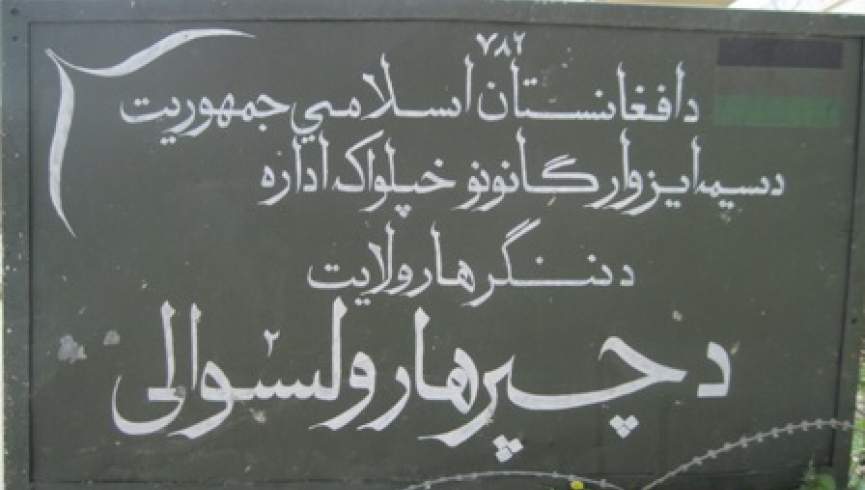 ۷۸۶
د افغانستان اسلامي جمهوریت
د سیمه ایزو ارگانونو خپلواکه اداره
د ننگرهار ولایت
د چپرهار ولسوالی